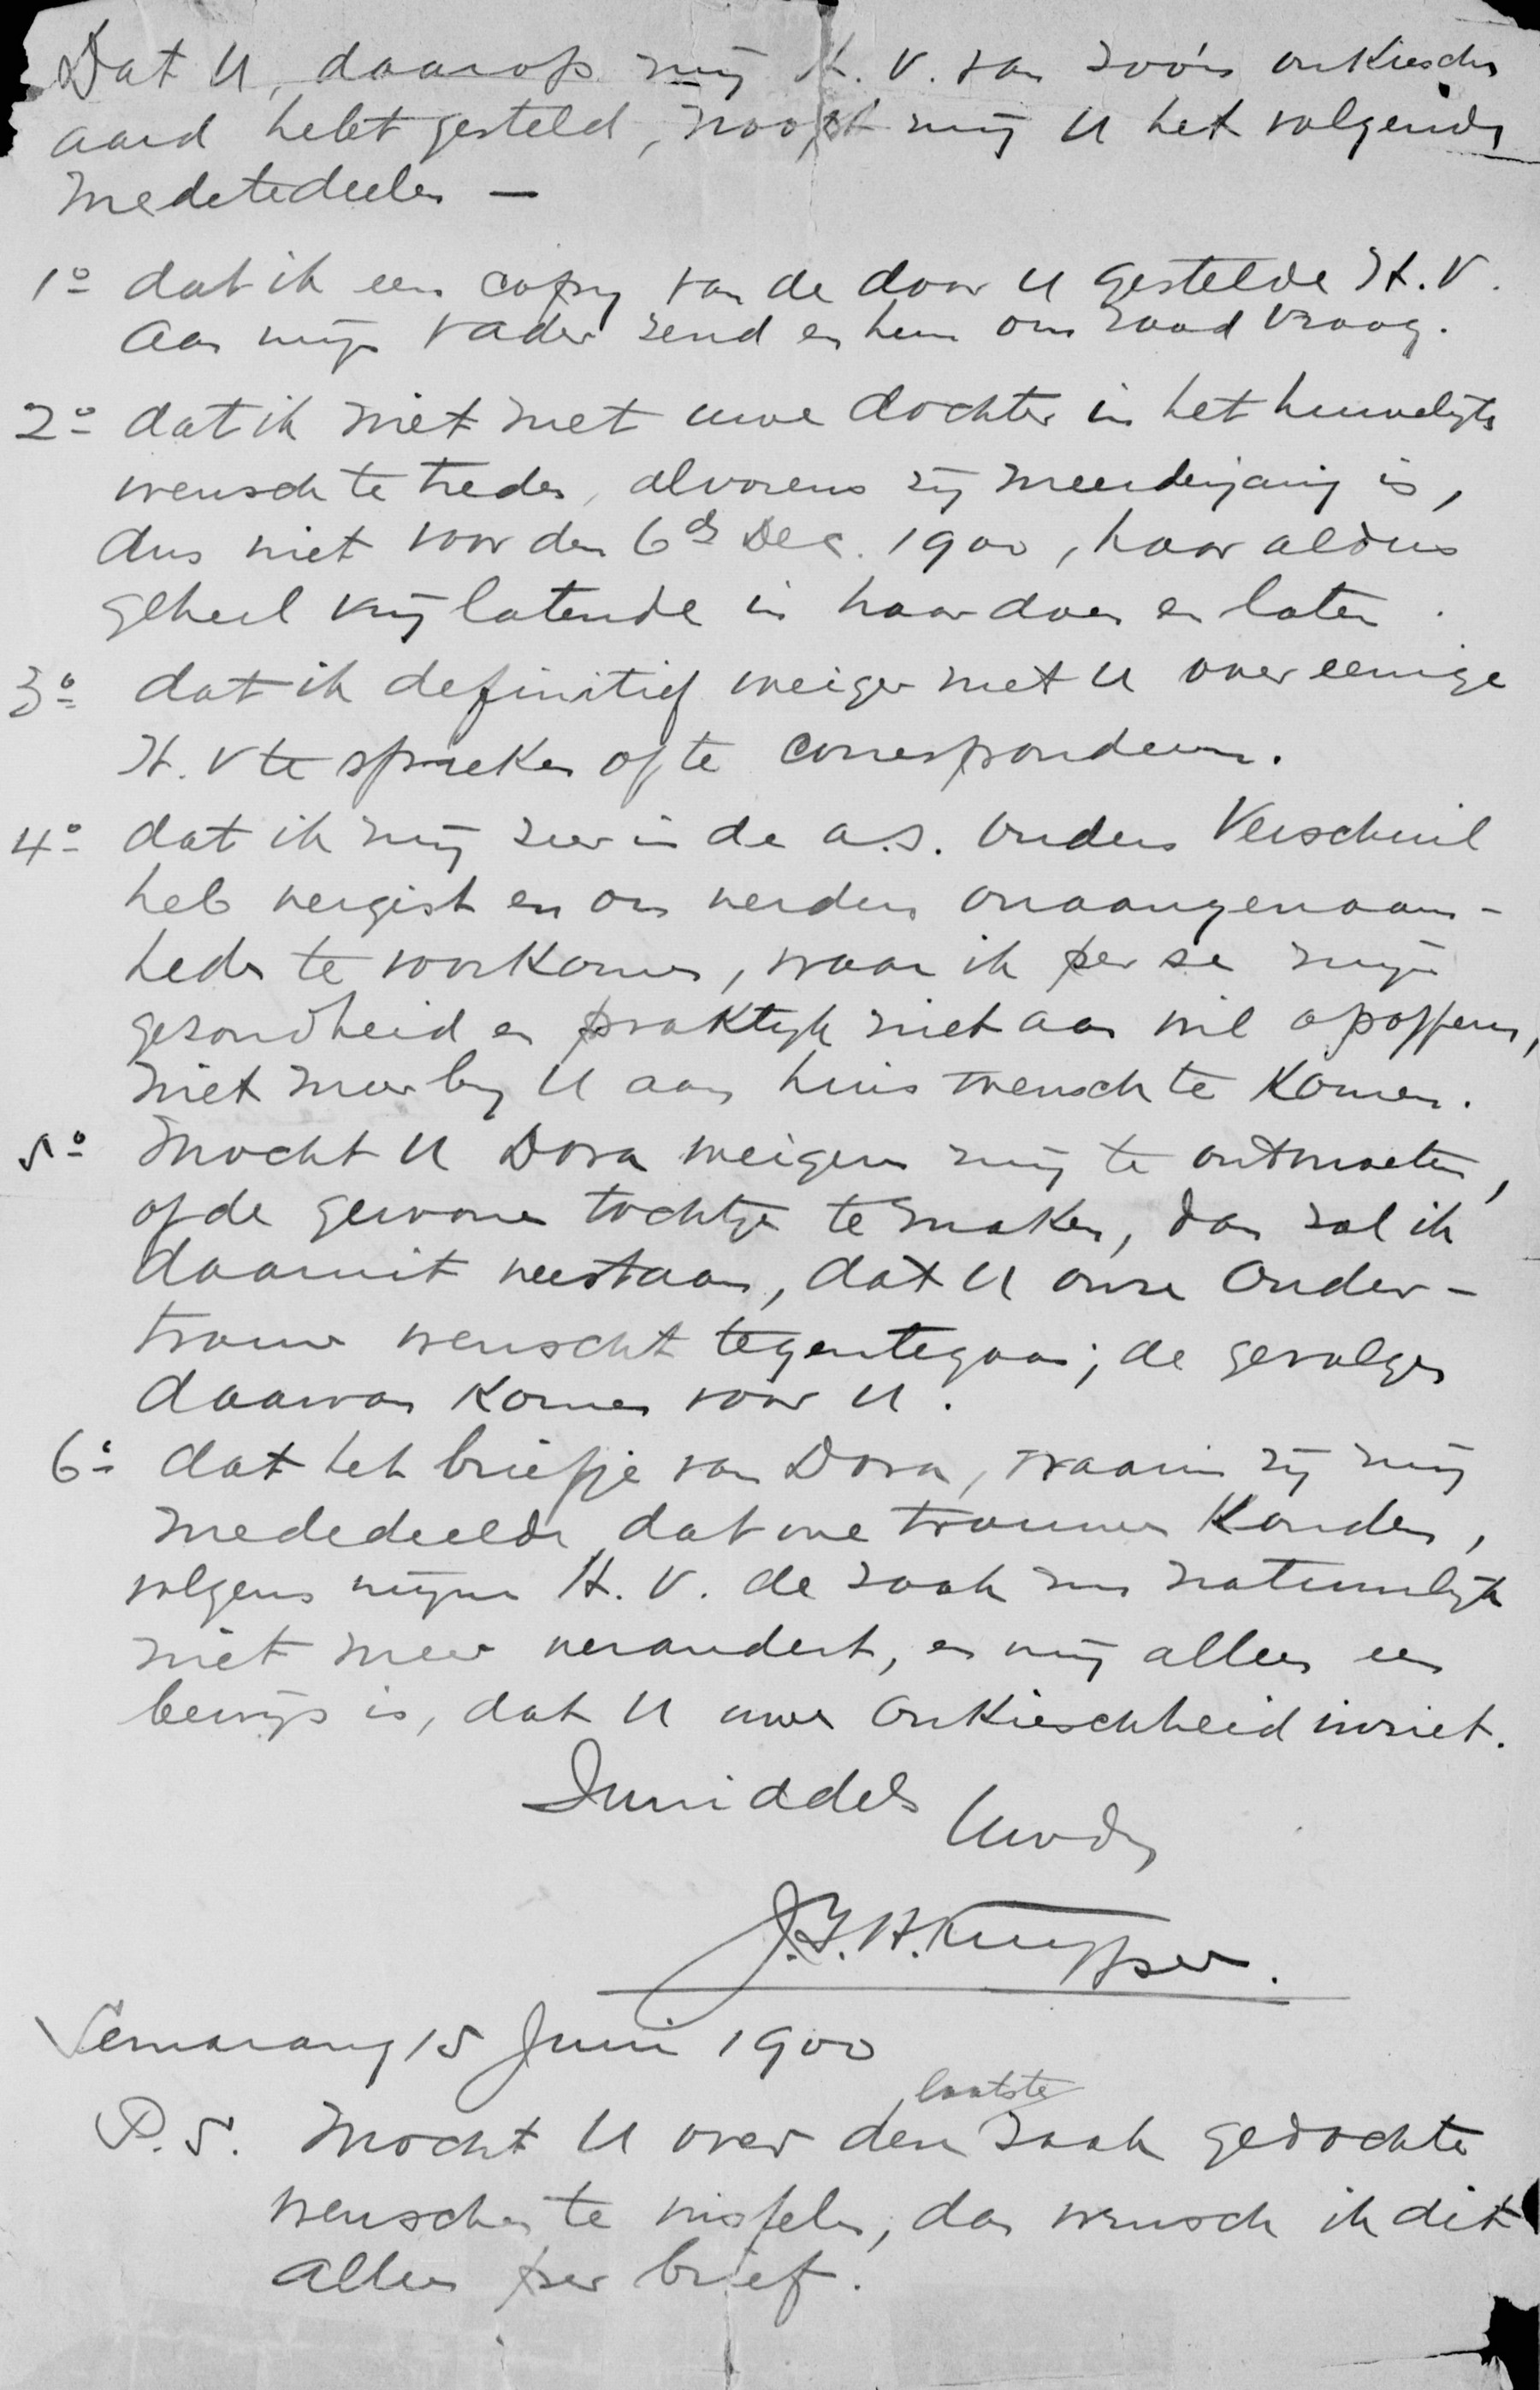 Dat U, daarop mij H.V. van zoo'n onkieschen
aard hebt gesteld, noopt mij U het volgende
medetedeelen —
1º dat ik een copy van de door U gestelde H.V.
aan mijn vader zend en hem om raad vraag.
2º dat ik niet met uwe dochter in het huwelijk
wensch te treden, alvorens zij meerderjarig is,
dus niet voor den 6de Dec. 1900, haar aldus
geheel vrij latende in haar doen en laten.
3º dat ik definitief weiger met U over eenige
H.V te spreken of te correspondeeren.
4º dat ik mij zeer in de a.s. ouders Verscheuil
heb vergist en om verdere onaangenaam-
heden te voorkomen, waar ik per se mijn
gezondheid en praktijk niet aan wil opofferen,
niet meer bij U aan huis wensch te komen.
5º Mocht U Dora weigeren mij te ontmoeten,
of de gewone tochtjes te maken, dan zal ik
daaruit verstaan, dat U onze Onder-
trouw wenscht tegentegaan; de gevolgen
daarvan komen voor U.
6º dat het briefje van Dora, waarin zij mij
mededeelde dat we trouwen konden,
volgens mijne H.V. de zaak nu natuurlijk
niet meer verandert, en mij alleen een
bewijs is, dat U uwe onkieschheid inziet.
Inmiddels
Uwdr
J.F.H. Kuyper.
Semarang 15 Juni 1900
laatste
P.S. Mocht U over den zaak gedachten
wenschen te wisselen, dan wensch ik dit
alleen per brief.